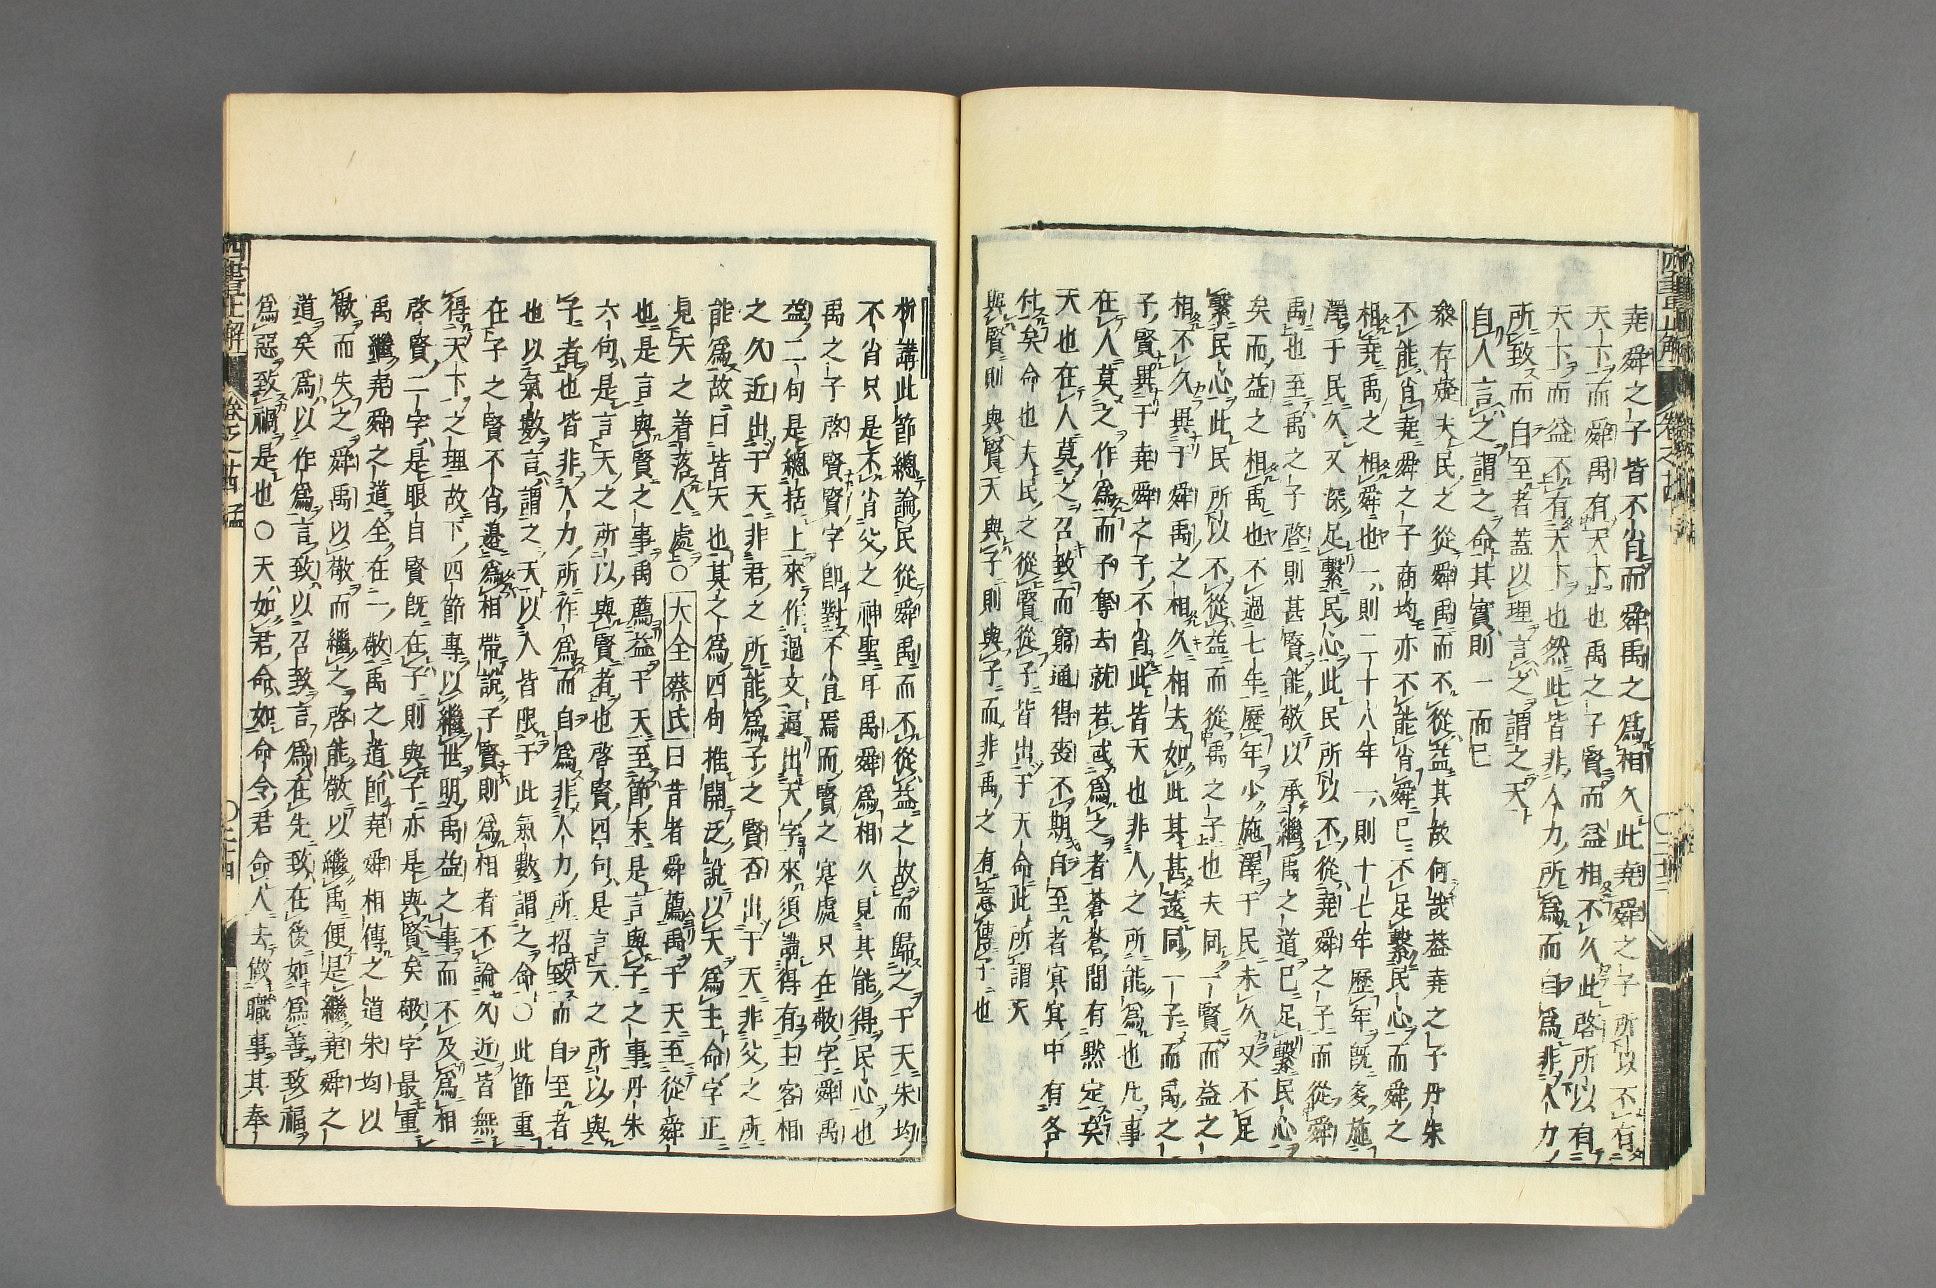 堯舜之子皆不肖而舜禹之爲相久此堯舜之子所以不有
天下而舜禹有天下也禹之子賢而益相不久此啓所以有
天下而益不有天下也然此皆非人力所爲而自爲非人力
所致而自至者蓋以理言之謂之天
自人言之謂之命其實則一而已
叅存疑夫民之從舜禹而不從益其故何哉葢堯之子丹朱
不能肖堯舜之子商均亦不能肖舜已不足繫民心而舜之
相堯禹之相舜也一則二十八年一則十七年歷年旣多施
澤于民久又深足繫民心此民所以不從堯舜之子而從舜
禹也至禹之子啓則甚賢能敬以承繼禹之道已足繫民心
矣而益之相禹也不過七年歷年少施澤于民未久又不足
繫民心此民所以不從益而從禹之子也夫同一賢而益之
相不久異于舜禹之相久相去如此其甚遠同一子而禹之
子賢異于堯舜之子不肖此皆天也非人之所能爲也凡事
在人莫之作爲而予奪去就若或爲之者蒼蒼間有黙定矣
天也在人莫之召致而窮通得喪不期自至者冥冥中有各
付矣命也夫民之從賢從子皆出于天命此所謂天
與賢則與賢天與子則與子而非禹之有意傳子也
析講此節總論民從舜禹而不從益之故而歸之于天朱均
不肖只是不肖父之神聖耳禹舜爲相久見其能得民心也
禹之子啓賢賢字卽對不肖焉而賢之寔處只在敬字舜禹
益二句是總括上來作過文逼出天字來須講得有主客相
之久近出于天非君之所能爲子之賢否出于天非父之所
能爲故曰皆天也其之爲四句推開泛說以天爲主命字正
見天之着落人處○大全蔡氏曰昔者舜薦禹于天至從舜
也是言與賢之事禹薦益于天至節末是言與子之事丹朱
六句是言天之所以與賢者也啓賢四句是言天之所以與
子者也皆非人力所作爲而自爲非人力所招致而自至者
也以氣數言謂之天以人皆限于此氣數謂之命○此節重
在子之賢不肖邉爲相帶說子賢則爲相者不論久近皆無
得天下之理故下四節專以繼世明禹益之事而不及爲相
啓賢二字是眼目賢旣在子則與子亦是與賢矣敬字最重
禹繼堯舜之道全在一敬禹之道卽堯舜相傳之道朱均以
傲而失之舜禹以敬而繼之啓能敬以繼禹便是繼堯舜之
道矣爲以作爲言致以召致言爲在先致在後如爲善致福
爲惡致禍是也○天如君命如命令君命人去做職事其奉